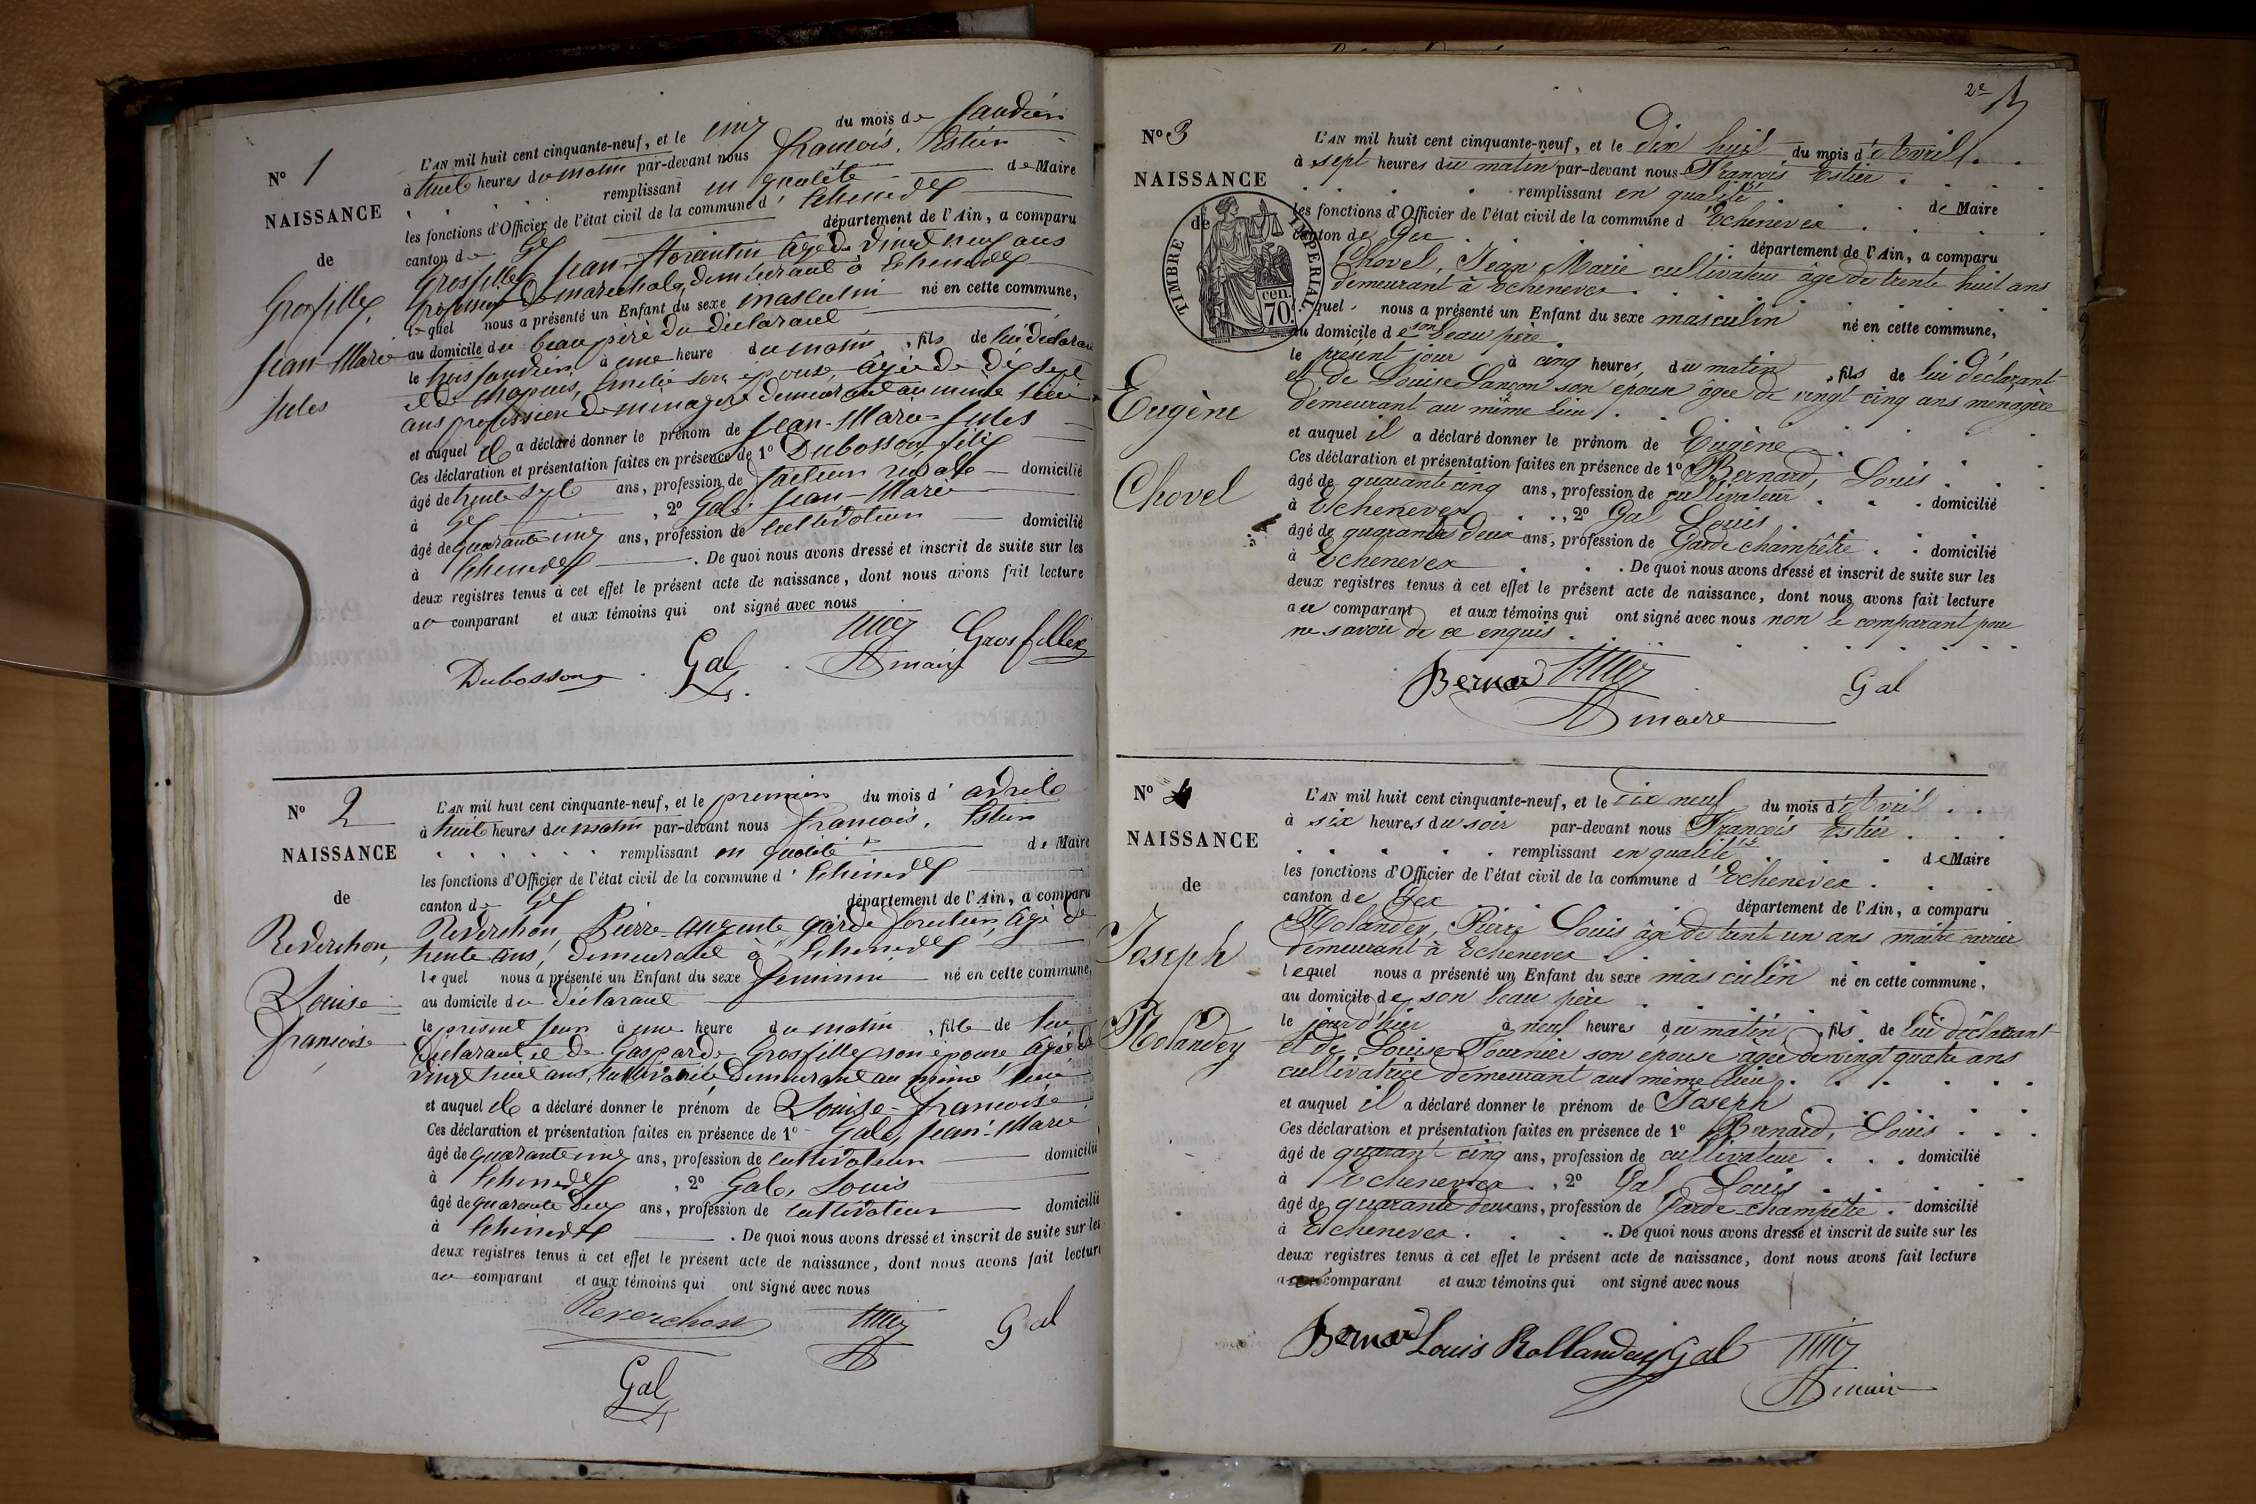 N° 1
NAISSANCE
de
Grosfilley,
Jean-Marie
Jules
L'AN mil huit cent cinquante-neuf, et le cinq du mois de janvier
à huit heures du matin par-devant nous françois, Estier
remplissant en qualité de Maire
les fonctions d'Officier de l'état civil de la commune d' Echenevex
canton de Gex département de l'Ain, a comparu
Grosfilley Jean-florentin âgé de vingt neuf ans
profession de marechal, demeurant à Echenevex
lequel nous a présenté un Enfant du sexe masculin né en cette commune,
au domicile du beau père du déclarant
le trois janvier à une heure du matin, fils de lui déclarant
et de Chapuis, Emelie son epouse, âgée de dix sept
ans profession de menagère demeurant au meme lieu
et auquel il a déclaré donner le prénom de Jean-Marie-Jules
Ces déclaration et présentation faites en présence de 1° Dubosson, félix
âgé de trente sept ans, profession de facteur rural domicilié
à Gex, 2° Gal, Jean-Marie
âgé de quarante cinq ans, profession de cultivateur domicilié
à Echenevex. De quoi nous avons dressé et inscrit de suite sur les
deux registres tenus à cet effet le présent acte de naissance, dont nous avons fait lecture
au comparant et aux témoins qui ont signé avec nous
Dubosson Gal maire Grosfilley
N° 2
NAISSANCE
de
Reverchon,
Louise
françoise
L'AN mil huit cent cinquante-neuf, et le premier du mois d' avril
à huit heures du matin par-devant nous françois, Estier
remplissant en qualité de Maire
les fonctions d'Officier de l'état civil de la commune d' Echenevex
canton de Gex département de l'Ain, a comparu
Reverchon Pierre-auguste garde forestier, âgé de
trente ans, demeurant à Echenevex
lequel nous a présenté un Enfant du sexe feminin né en cette commune,
au domicile du déclarant
le présent jour à une heure du matin, fille de lui
déclarant et de Gasparde Grosfilley son épouse âgée de
vingt huit ans, cultivatrice demeurant au même lieu
et auquel il a déclaré donner le prénom de Louise-françoise
Ces déclaration et présentation faites en présence de 1° Gal, Jean-Marie
âgé de quarante cinq ans, profession de cultivateur domicilié
à Echenevex, 2° Gal, Louis
âgé de quarante deux ans, profession de cultivateur domicilié
à Echenevex. De quoi nous avons dressé et inscrit de suite sur les
deux registres tenus à cet effet le présent acte de naissance, dont nous avons fait lecture
au comparant et aux témoins qui ont signé avec nous
Reverchon Gal
Gal
2e
N° 3
NAISSANCE
de
TIMBRE IMPERIAL
70 cen.
Eugène
Chovel
L'AN mil huit cent cinquante-neuf, et le dix huit du mois d'Avril
à sept heures du matin par-devant nous François Estier
remplissant en qualité de Maire
les fonctions d'Officier de l'état civil de la commune d'Echenevex
canton de Gex département de l'Ain, a comparu
Chovel, Jean Marie cultivateur âgé de trente huit ans
demeurant à Echenevex
lequel nous a présenté un Enfant du sexe masculin né en cette commune,
au domicile de son beau père
le présent jour à cinq heures, du matin, fils de lui déclarant
et de Louise Lançon son epouse âgée de vingt cinq ans menagère
demeurant au même lieu
et auquel il a déclaré donner le prénom de Eugène
Ces déclaration et présentation faites en présence de 1° Bernard, Louis
âgé de quarante cinq ans, profession de cultivateur domicilié
à Echenevex, 2° Gal Louis
âgé de quarante deux ans, profession de Garde champêtre domicilié
à Echenevex. De quoi nous avons dressé et inscrit de suite sur les
deux registres tenus à cet effet le présent acte de naissance, dont nous avons fait lecture
au comparant et aux témoins qui ont signé avec nous non le comparant pour
ne savoir de ce enquis
Bernard Gal
maire
N° 4
NAISSANCE
de
Joseph
Rolandey
L'AN mil huit cent cinquante-neuf, et le dix neuf du mois d'Avril
à six heures du soir par-devant nous François Estier
remplissant en qualité de Maire
les fonctions d'Officier de l'état civil de la commune d'Echenevex
canton de Gex département de l'Ain, a comparu
Rolandey, Pierre Louis âgé de trente un ans maitre carrier
demeurant à Echenevex
lequel nous a présenté un Enfant du sexe masculin né en cette commune,
au domicile de son beau père
le jour d'hier à neuf heures du matin, fils de lui déclarant
et de Louise Fournier son épouse âgée de vingt quatre ans
cultivatrice demeurant au même lieu
et auquel il a déclaré donner le prénom de Joseph
Ces déclaration et présentation faites en présence de 1° Bernard, Louis
âgé de quarant cinq ans, profession de cultivateur domicilié
à Echenevex, 2° Gal Louis
âgé de quarante deux ans, profession de Garde-champêtre domicilié
à Echenevex. De quoi nous avons dressé et inscrit de suite sur les
deux registres tenus à cet effet le présent acte de naissance, dont nous avons fait lecture
au comparant et aux témoins qui ont signé avec nous
Bernard Louis Rollandey Gal
maire